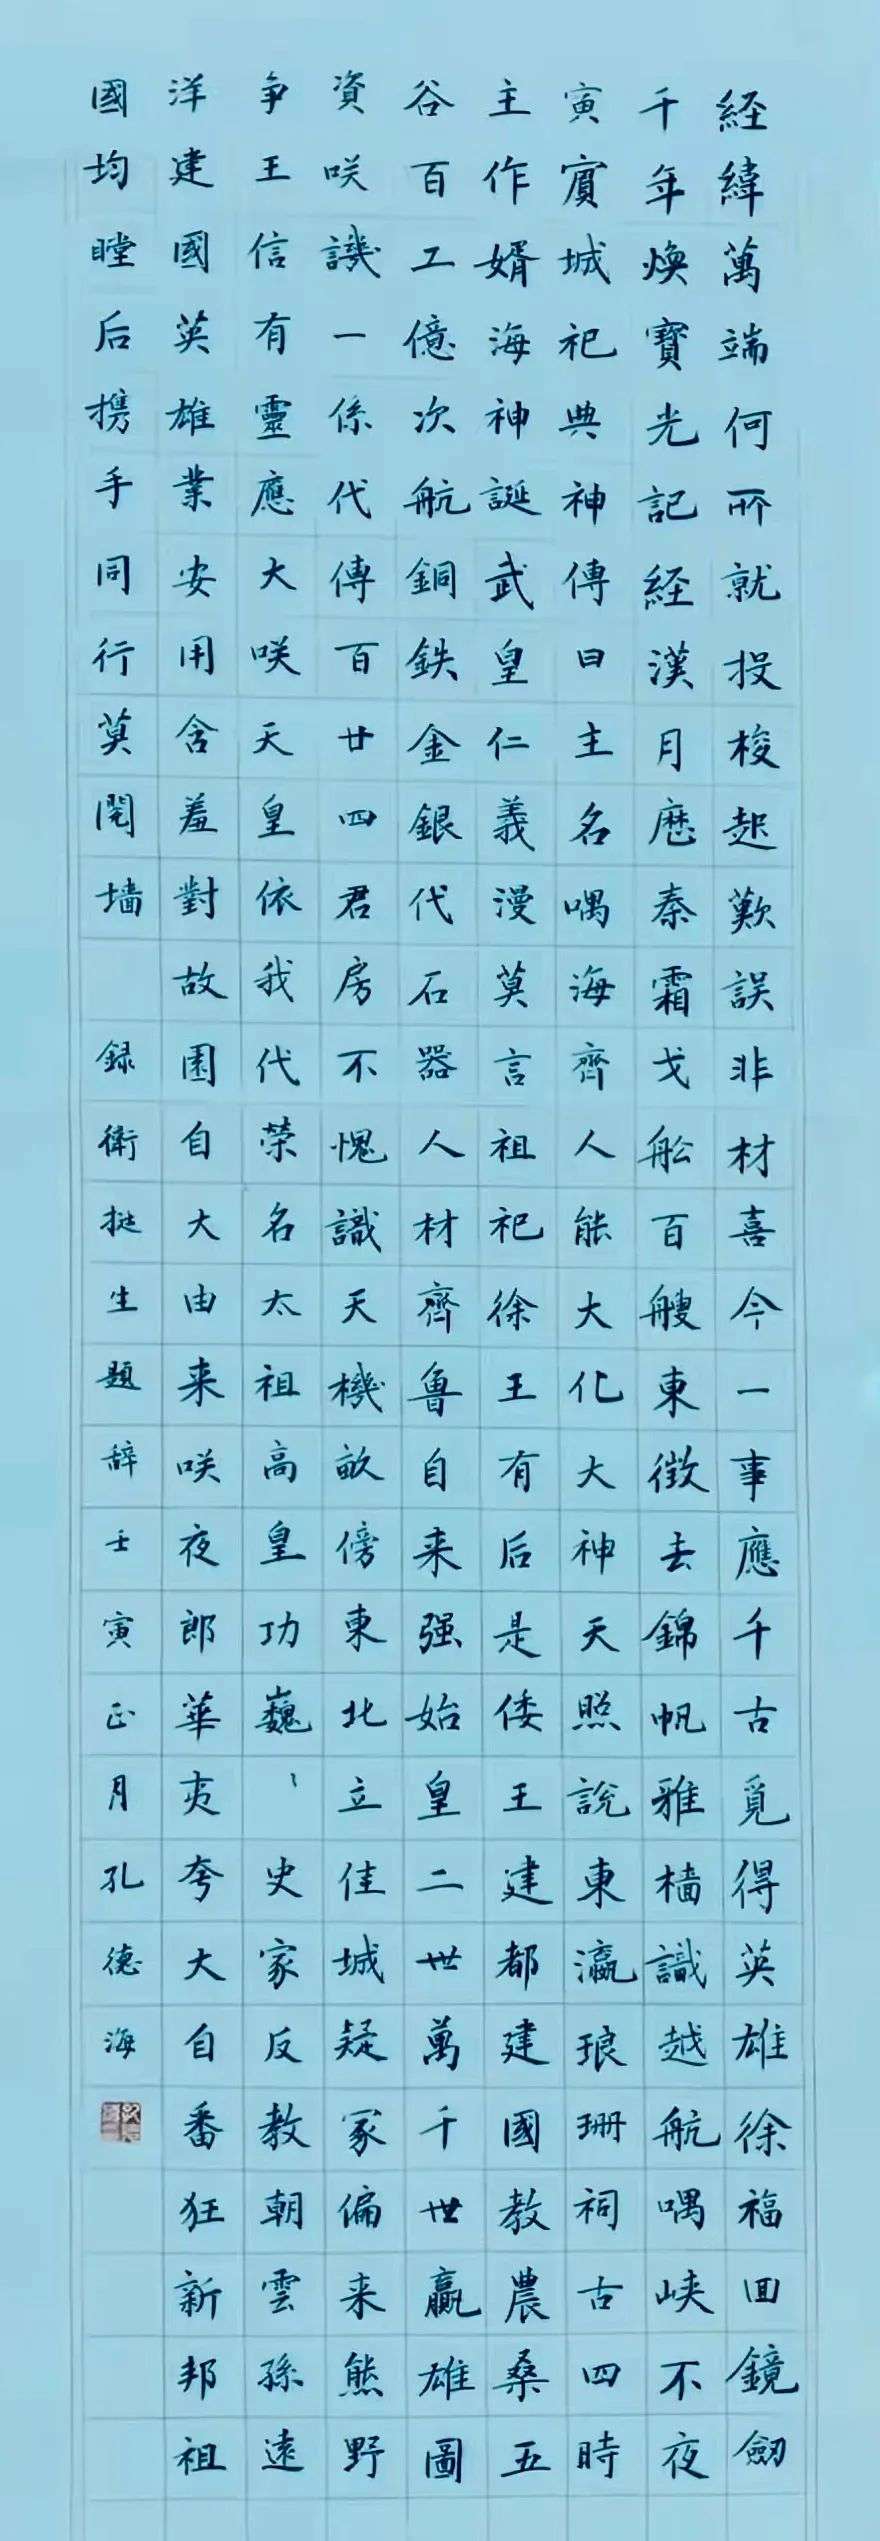 経緯萬端何所就投梭起歎誤非材喜今一事應千古覓得英雄徐福回鏡劒
千年煥寶光記経漢月歷秦霜戈舩百艘東徴去錦帆雅檣識越航喁峡不夜
寅賓城祀典神傳日主名喁海齊人能大化大神天照說東瀛琅珊祠古四時
主作婿海神誕武皇仁義漫莫言祖祀徐王有后是倭王建都建國教農桑五
谷百工億次航銅鉄金銀代石器人材齊魯自来强始皇二世萬千世贏雄圖
資咲譏一係代傳百廿四君房不愧識天機畝傍東北立佳城疑冢偏来熊野
争王信有靈應大咲天皇依我代榮名太祖高皇功巍〻史家反教朝雲孫遠
洋建國英雄業安用含羞對故園自大由来咲夜郎華夷夸大自番狂新邦祖
國均瞠后携手同行莫鬩墙 録衛挺生題辞壬寅正月孔德海